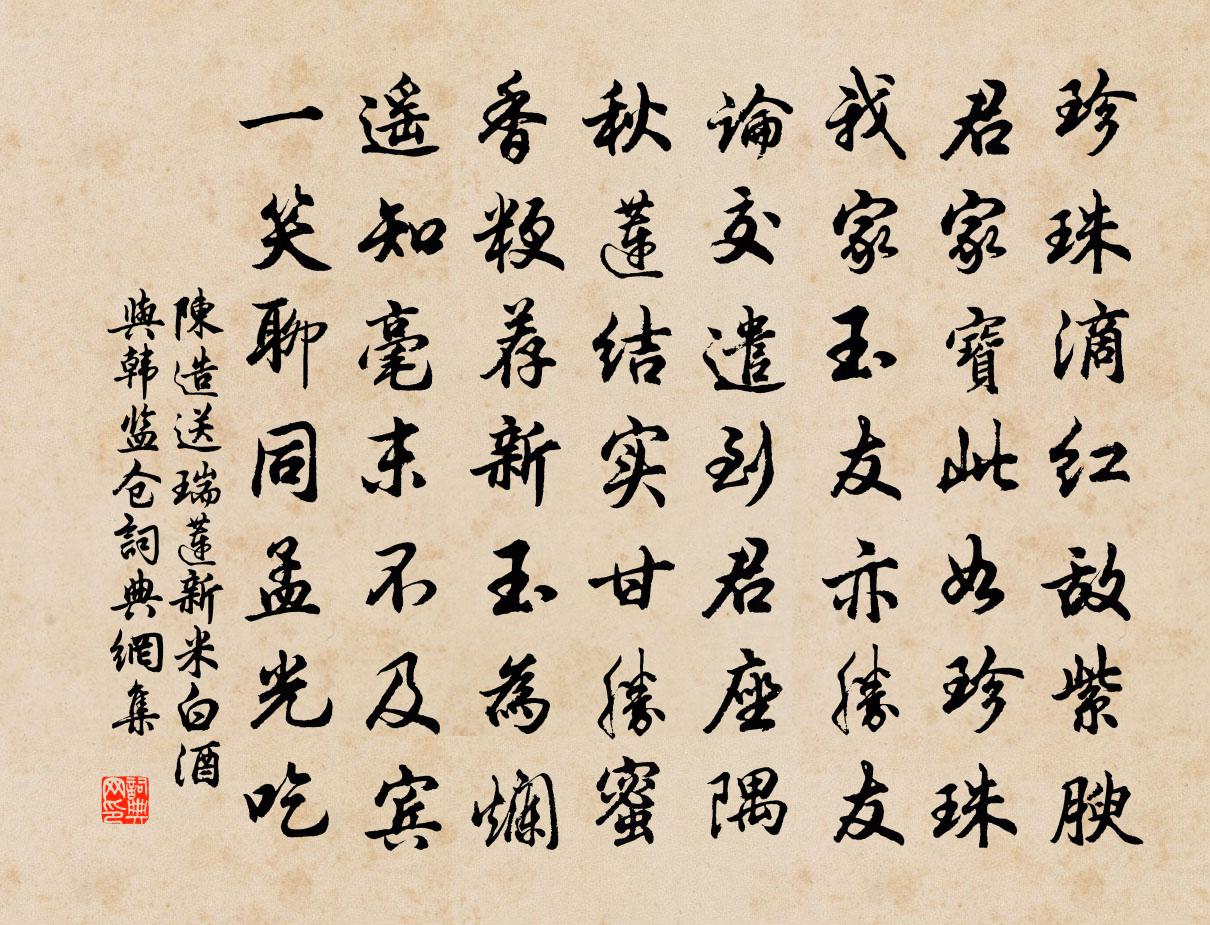 珍珠滴红敌紫腴
君家寶此如珍珠
我家玉友亦勝友
論交遣到君座隅
秋蓮结实甘勝蜜
香粳荐新玉為爛
遥知毫末不及宾
一笑聊同孟光吃
陳造送瑞蓮新米白酒
與韩监仓詞典網集
詞典
网印